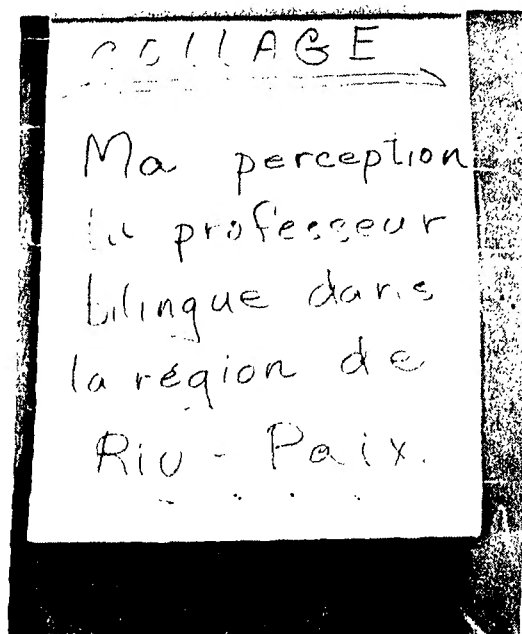 COLLAGE
Ma perception
du professeur
bilingue dans
la région de
Riv-Paix.